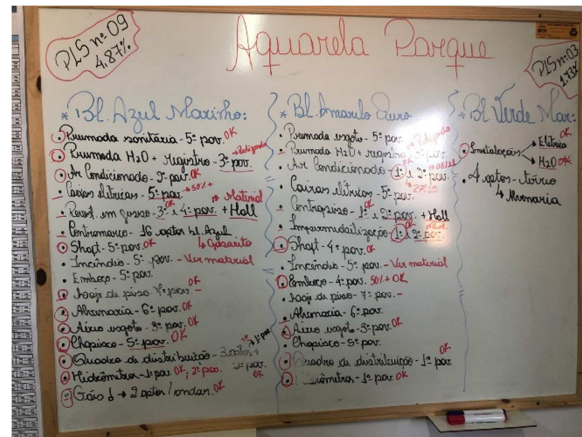 PLS nº 09
4.87%
Aquarela Parque
PLS nº 03
1.73%
* Bl. Azul Marinho:
Prumada sanitária - 5º pav. OK
Prumada H2O + registro - 3º pav.
Ar Condicionado - 5º pav. OK
Caixas elétricas - 5º pav → 50%
Rev. em gesso - 3º e 4º pav. + Hall → Material
Contramarco - 16 aptos bl. Azul
Shaft - 5º pav OK
Incêndio - 5º pav. - Ver material
Emboço - 5º pav.
Laje de piso 7º pav. OK
Alvenaria - 6º pav. OK
Aéreo esgoto - 3º pav. OK
Chapisco - 5º pav. OK
Quadro de distribuição - 3 aptos +
Hidrômetro - 1º pav. OK, 2º pav. OK
Gás → 2 aptos / andar. OK
* Bl. Amarelo Ouro
Prumada esgoto - 5º pav.
Prumada H2O + registro
Ar Condicionado - 1º e 2º pav.
Caixas elétricas - 5º pav.
Contrapiso - 1º e 2º pav. + Hall
Impermeabilização - 1º e 2º pav.
Shaft - 4º pav. OK
Incêndio - 5º pav - Ver material
Emboço - 4º pav. 50% + OK
Laje de piso - 7º pav. -
Alvenaria - 6º pav.
Aéreo esgoto - 3º pav. OK
Chapisco - 5º pav.
Quadro de distribuição - 1º pav OK
Hidrômetro - 1º pav. OK
* Bl. Verde Mar:
Instalações → Elétrica OK
→ H2O OK
4 aptos - térreo
↳ Alvenaria